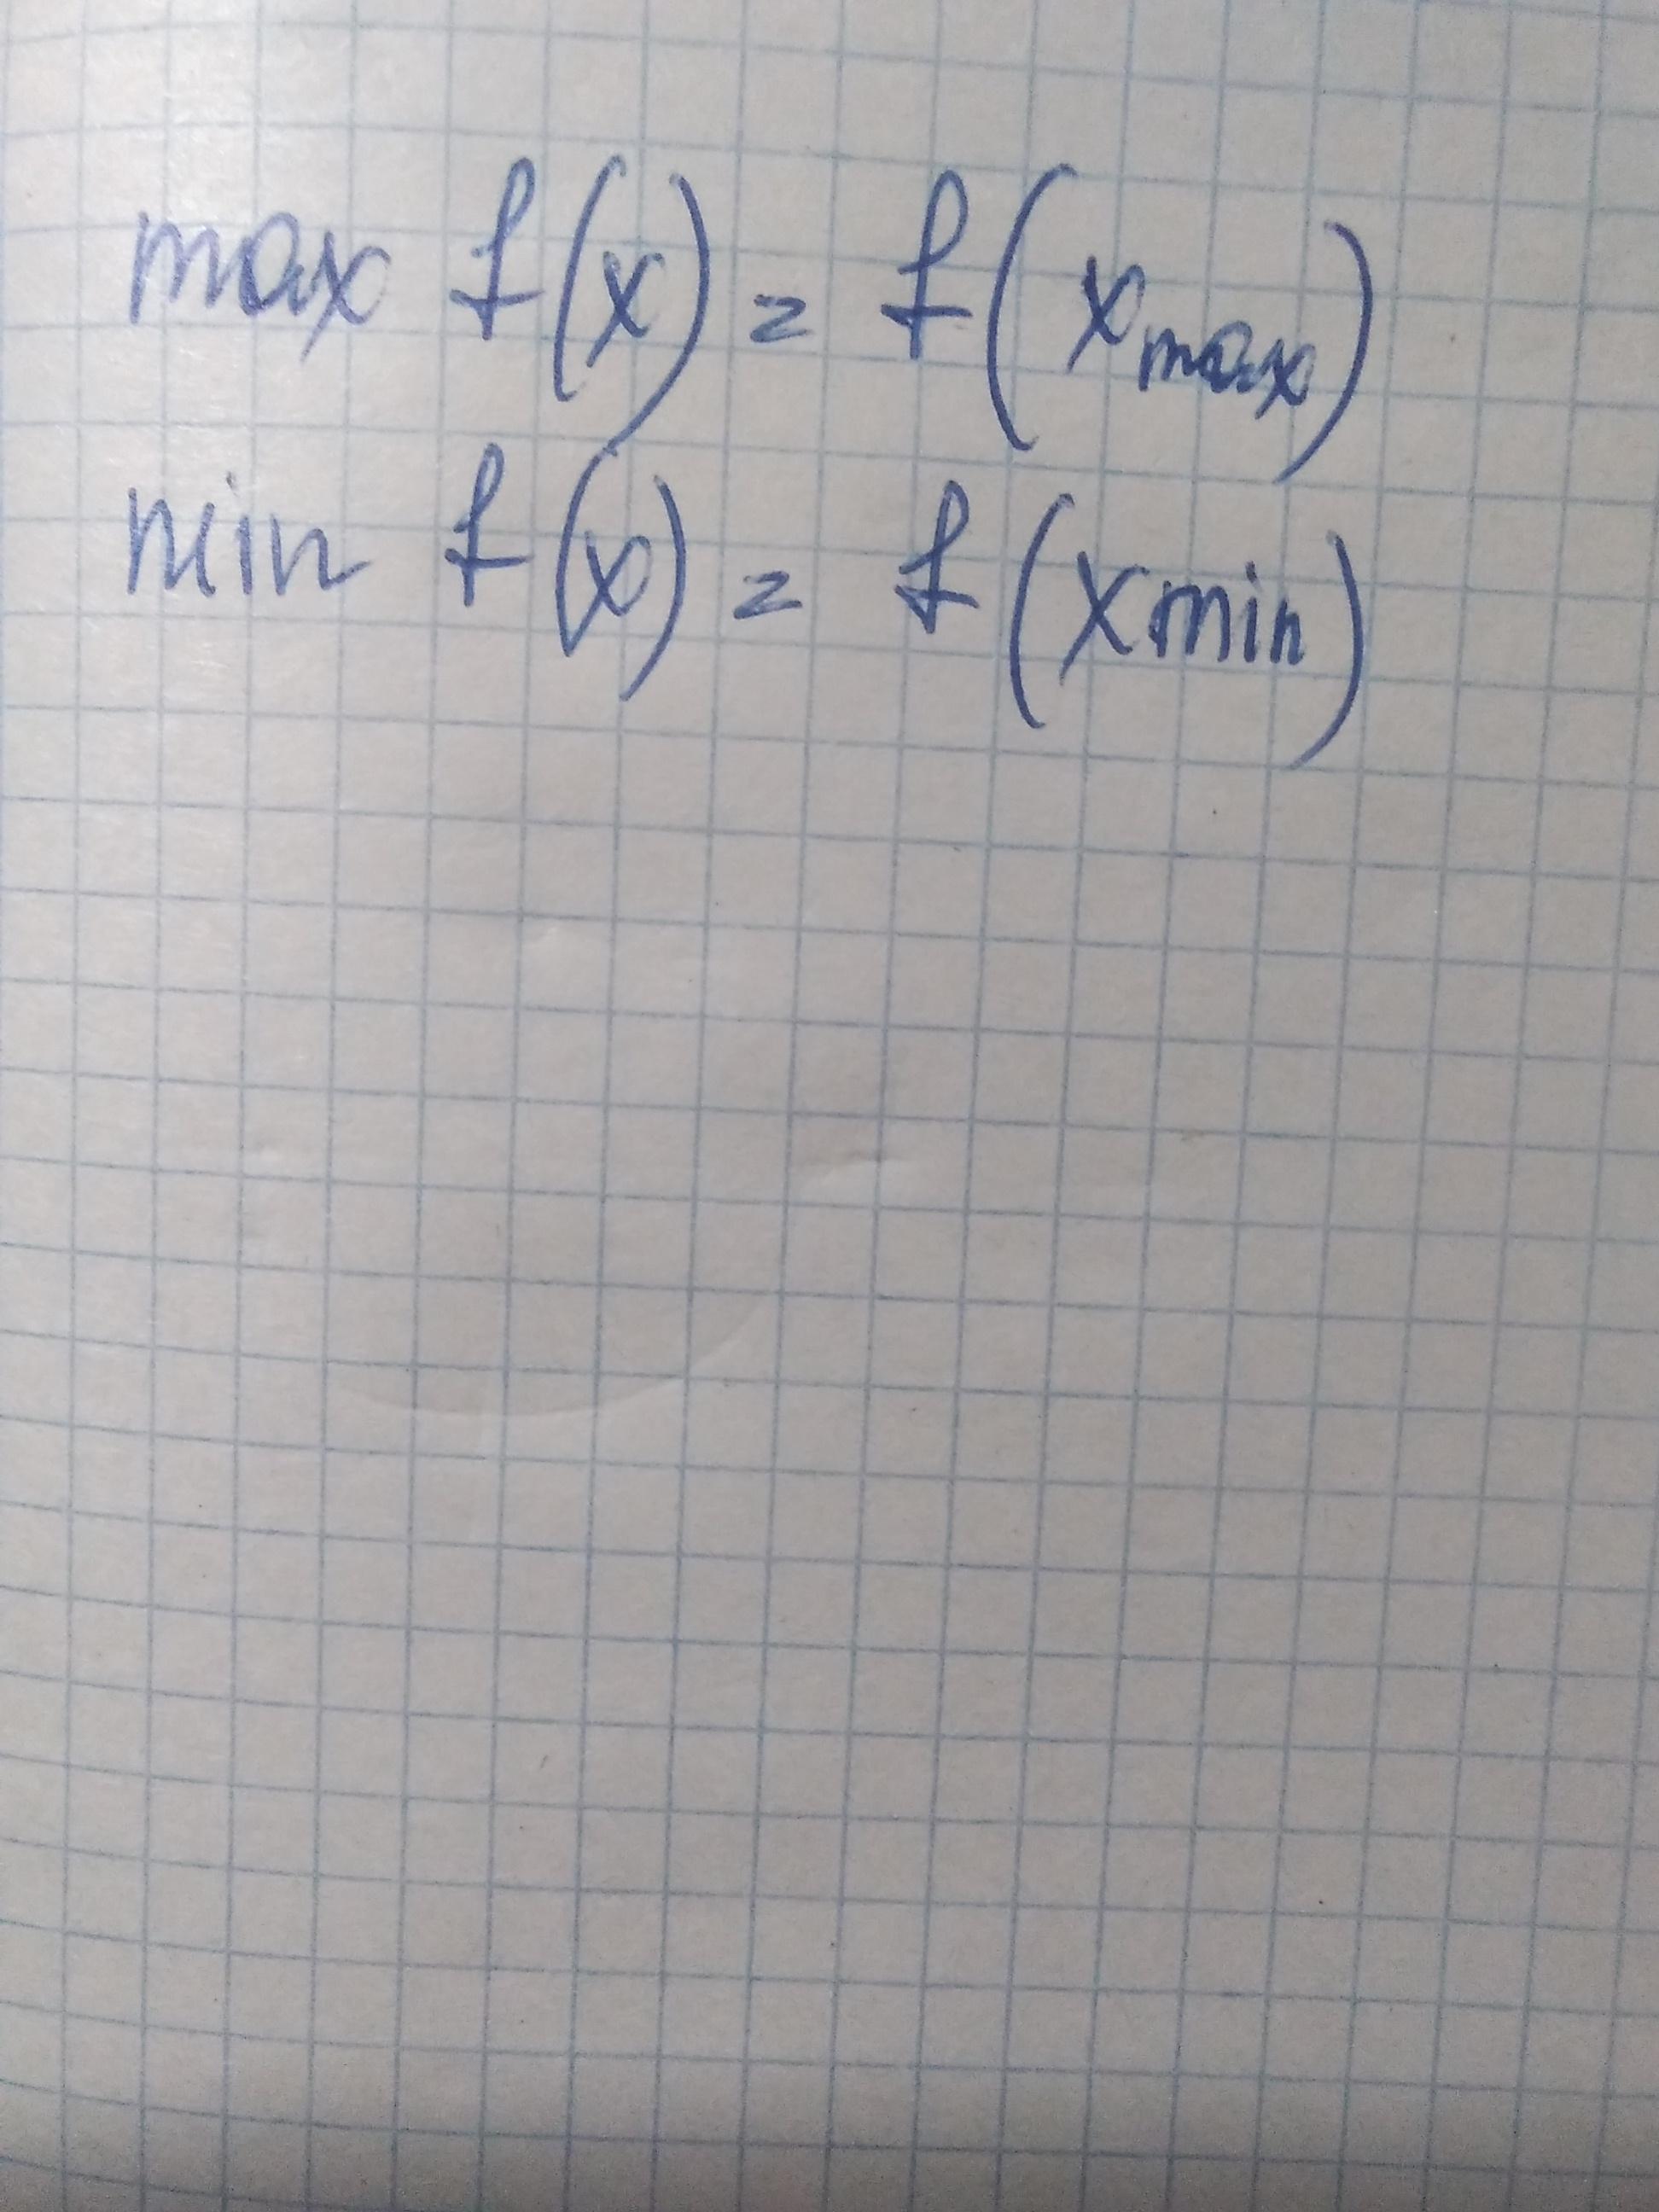 max f(x) = f(x_max)
min f(x) = f(xmin)